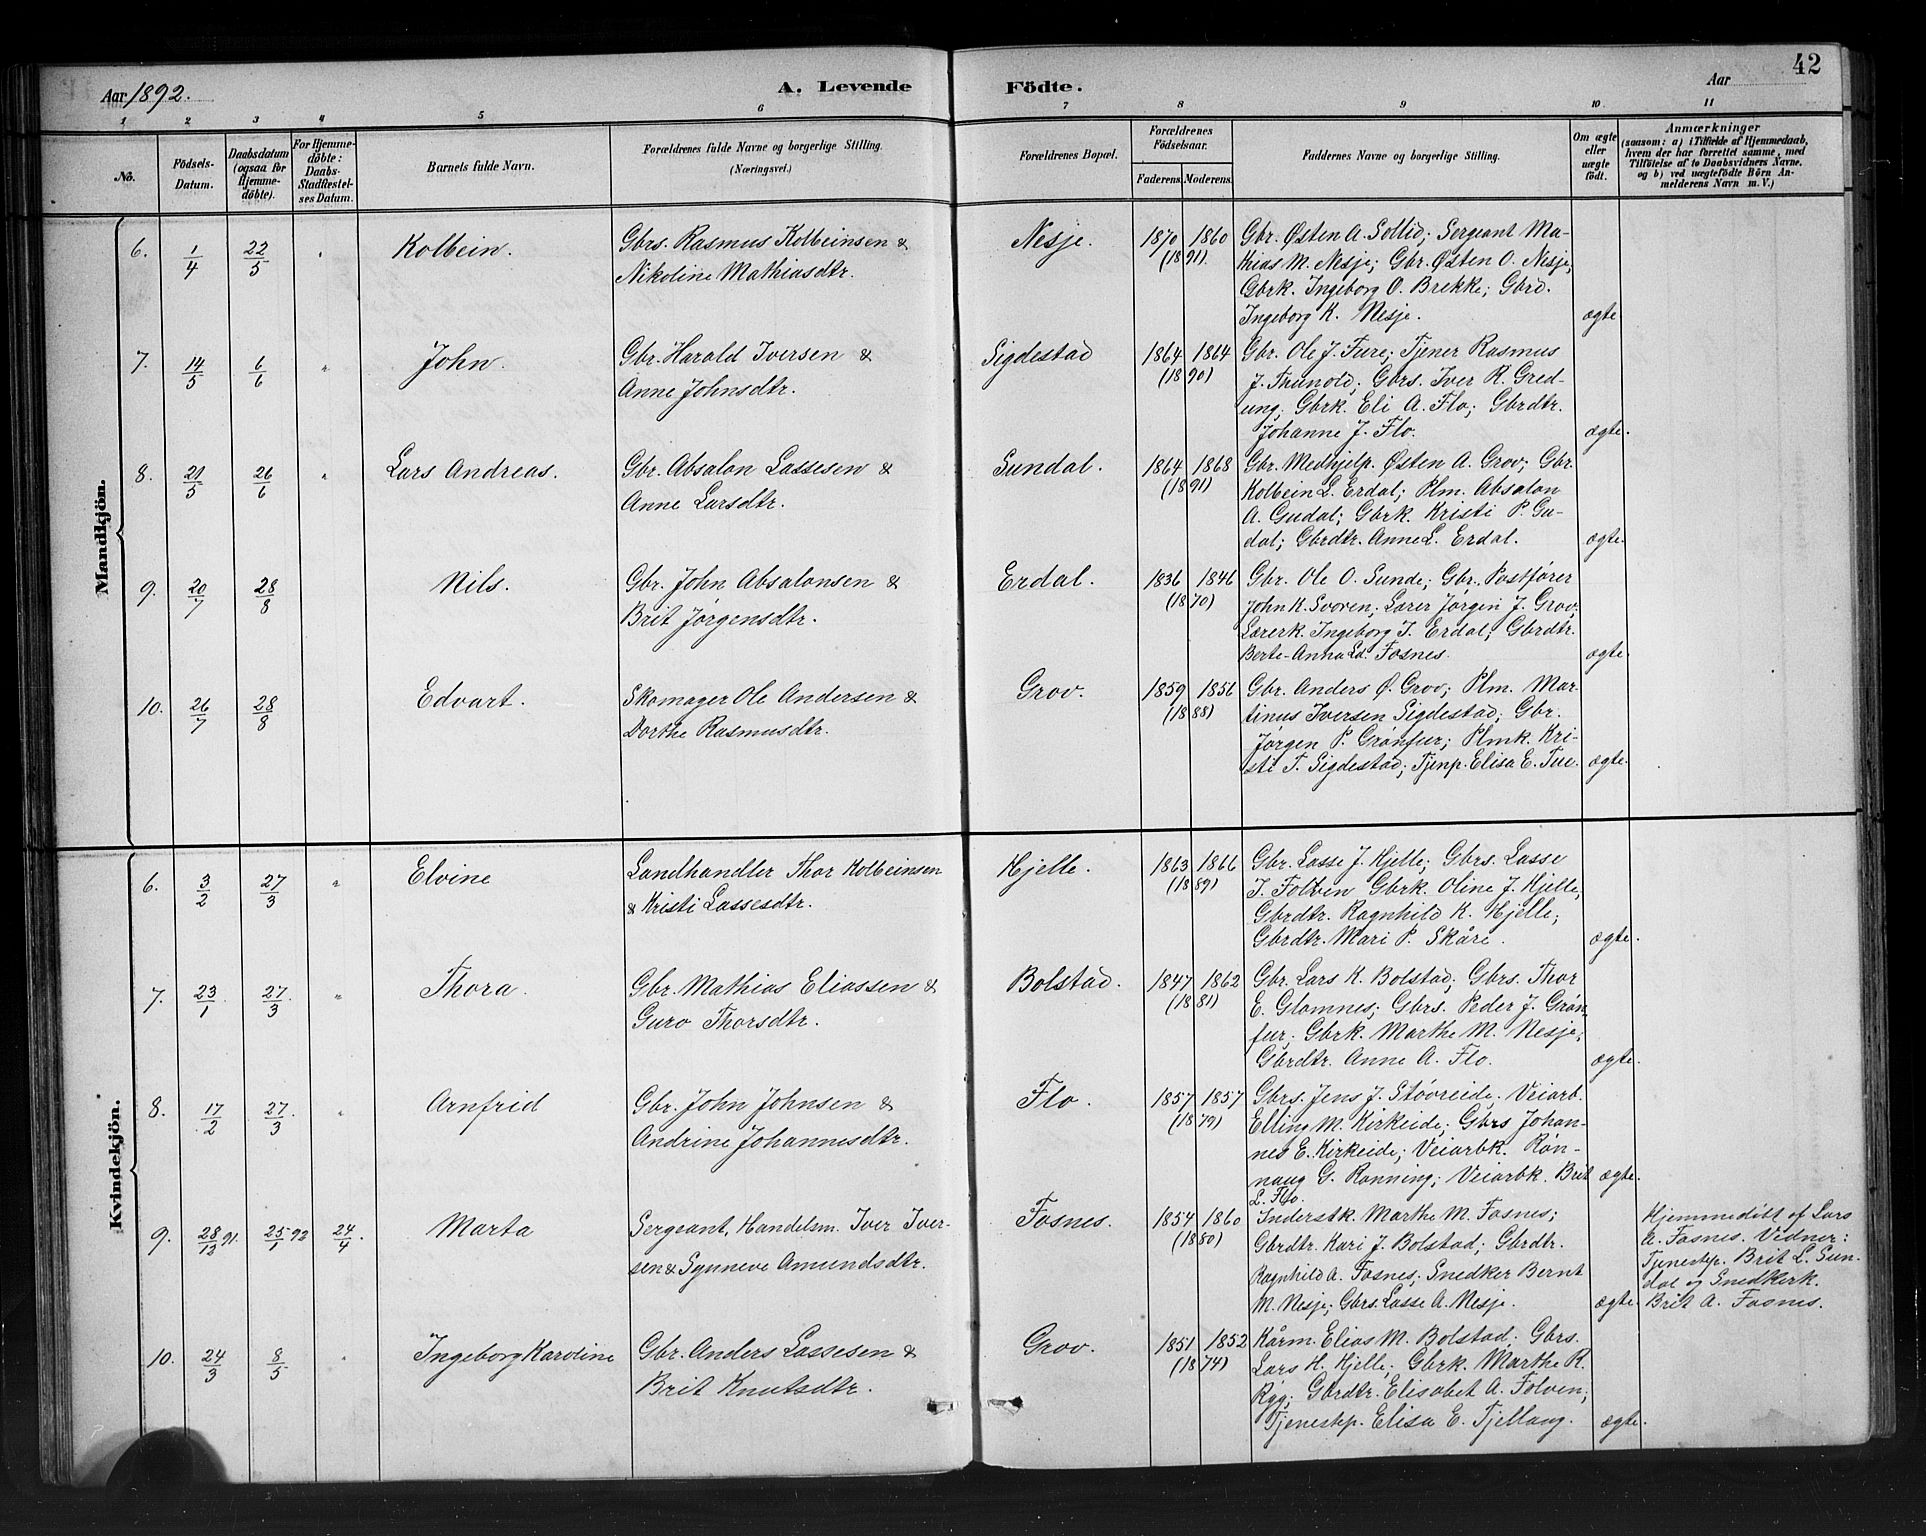 42
Aar 1892.
A. Levende Födte.
Aar
1 2 3 4 5 6 7 8 9 10 11
No.
Födsels-Datum.
Daabsdatum (ogsaa for Hjemmedöbte).
For Hjemmedöbte: Daabs-Stadfæstelses Datum.
Barnets fulde Navn.
Forældrenes fulde Navne og borgerlige Stilling.
(Næringsvei.)
Forældrenes Bopæl.
Forældrenes Födselsaar.
Faderens. Moderens.
Faddernes Navne og borgerlige Stilling.
Om ægte eller uægte födt.
Anmærkninger
(saasom: a) i Tilfælde af Hjemmedaab, hvem der har forrettet samme, med Tilföielse af to Daabsvidners Navne, og b) ved uægtefödte Börn Anmelderens Navn m. V.)
Mandkjön.
6. 1/4 22/5 " Kolbein. Gbrs. Rasmus Kolbeinsen & Nesje. 1870 1860 Gbr. Østen A. Sollid; Sergeant Ma-
Nikoline Mathiasdtr. (1891) thias M. Nesje; Gbr. Østen O. Nesje;
Gbrk. Ingeborg O. Brekke; Gbrd.
Ingeborg K. Nesje. ægte
7. 14/5 6/6 " John. Gbr. Harald Iversen & Sigdestad 1864 1864 Gbr. Ole J. Fure; Tjener Rasmus
Anne Johnsdtr. (1890) J. Trunold; Gbrs. Iver R. Gred-
ung; Gbrk. Eli A. Flo; Gbrdtr.
Johanne J. Flo. ægte.
8. 21/5 26/6 " Lars Andreas. Gbr. Absalon Lassesen & Sundal. 1864 1868 Gbr. Medhjelp. Østen A. Grov; Gbr.
Anne Larsdtr. (1891) Kolbein L. Erdal; Plm. Absalon
A. Gudal; Gbrk. Kristi P. Gu-
dal; Gbrdtr. Anne L. Erdal. ægte.
9. 20/7 28/8 Nils. Gbr. John Absalonsen & Erdal. 1836 1846 Gbr. Ole O. Sunde; Gbr. Postfører
Brit Jørgensdtr. (1870) John K. Svoren; Lærer Jørgen J. Grov;
Lærerk. Ingeborg J. Erdal; Gbrdtr.
Berte-Anna Ld. Fosnes. ægte.
10. 26/7 28/8 Edvart. Skomager Ole Andersen & Grov. 1859 1856 Gbr. Anders Ø. Grov; Plm. Mar-
Dorthe Rasmusdtr. (1888) tinus Iversen Sigdestad; Gbr.
Jørgen P. Grønfur; Plmk. Kri-
sti T. Sigdestad; Tjenp. Elisa E. Tue. ægte.
Kvindekjön.
6. 3/2 27/3 " Elvine Landhandler Thor Kolbeinsen Hjelle. 1863 1866 Gbr. Lasse J. Hjelle; Gbrs. Lasse
& Kristi Lassesdtr. (1889) J. Folven Gbrk. Oline J. Hjelle;
Gbrdtr. Ragnhild K. Hjelle;
Gbrdtr. Mari P. Skåre. ægte.
7. 23/1 27/3 " Thora. Gbr. Mathias Eliassen & Bolstad. 1847 1862 Gbr. Lars K. Bolstad; Gbrs. Thor
Guro Thorsdtr. (1881) E. Glomnes; Gbrs. Peder J. Grøn-
fur; Gbrk. Marthe M. Nesje;
Gbrdtr. Anne A. Flo. ægte.
8. 17/2 27/3 " Arnfrid Gbr. John Johnsen & Flo. 1857 1857 Gbrs. Jens J. Støvreide; Veiarb.
Andrine Johannesdtr. (1879) Elling M. Kirkeide; Gbrs Johan-
nes E. Kirkeide; Veiarbk. Røn-
naug G. Rønning; Veiarbk. Brit ægte.
L. Flo.
9. 28/12 91. 25/1 92 24/4. Marta Sergeant, Handelsm. Iver Iver- Fosnes. 1854 1860 Inderstk. Marthe M. Fosnes; Hjemmedøbt af Lars
sen & Synneve Amundsdtr. (1880) Gbrdtr. Kari J. Bolstad; Gbrdtr. A. Fosnes. Vidner:
Ragnhild A. Fosnes; Snedker Bernt Tjenestp. Brit L. Sun-
M. Nesje; Gbrs. Lasse A. Nesje. ægte. dal og Snedkerk.
Brit A. Fosnes.
10. 24/3 8/5 " Ingeborg Karoline Gbr. Anders Lassesen & Grov. 1851 1852 Kårm. Elias M. Bolstad. Gbrs.
Brit Knutsdtr. (1874) Lars H. Hjelle; Gbrk. Marthe R.
Ryg; Gbrdtr. Elisabet A. Folven;
Tjenestp. Elisa E. Tjellaug. ægte.